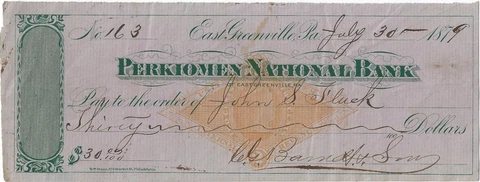 No. 163 East Greenville Pa July 30 1879
PERKIOMEN NATIONAL BANK
OF EAST GREENVILLE, PA.
Pay to the order of John S Fluck
Thirty 100 Dollars
$30.00/100 & Son